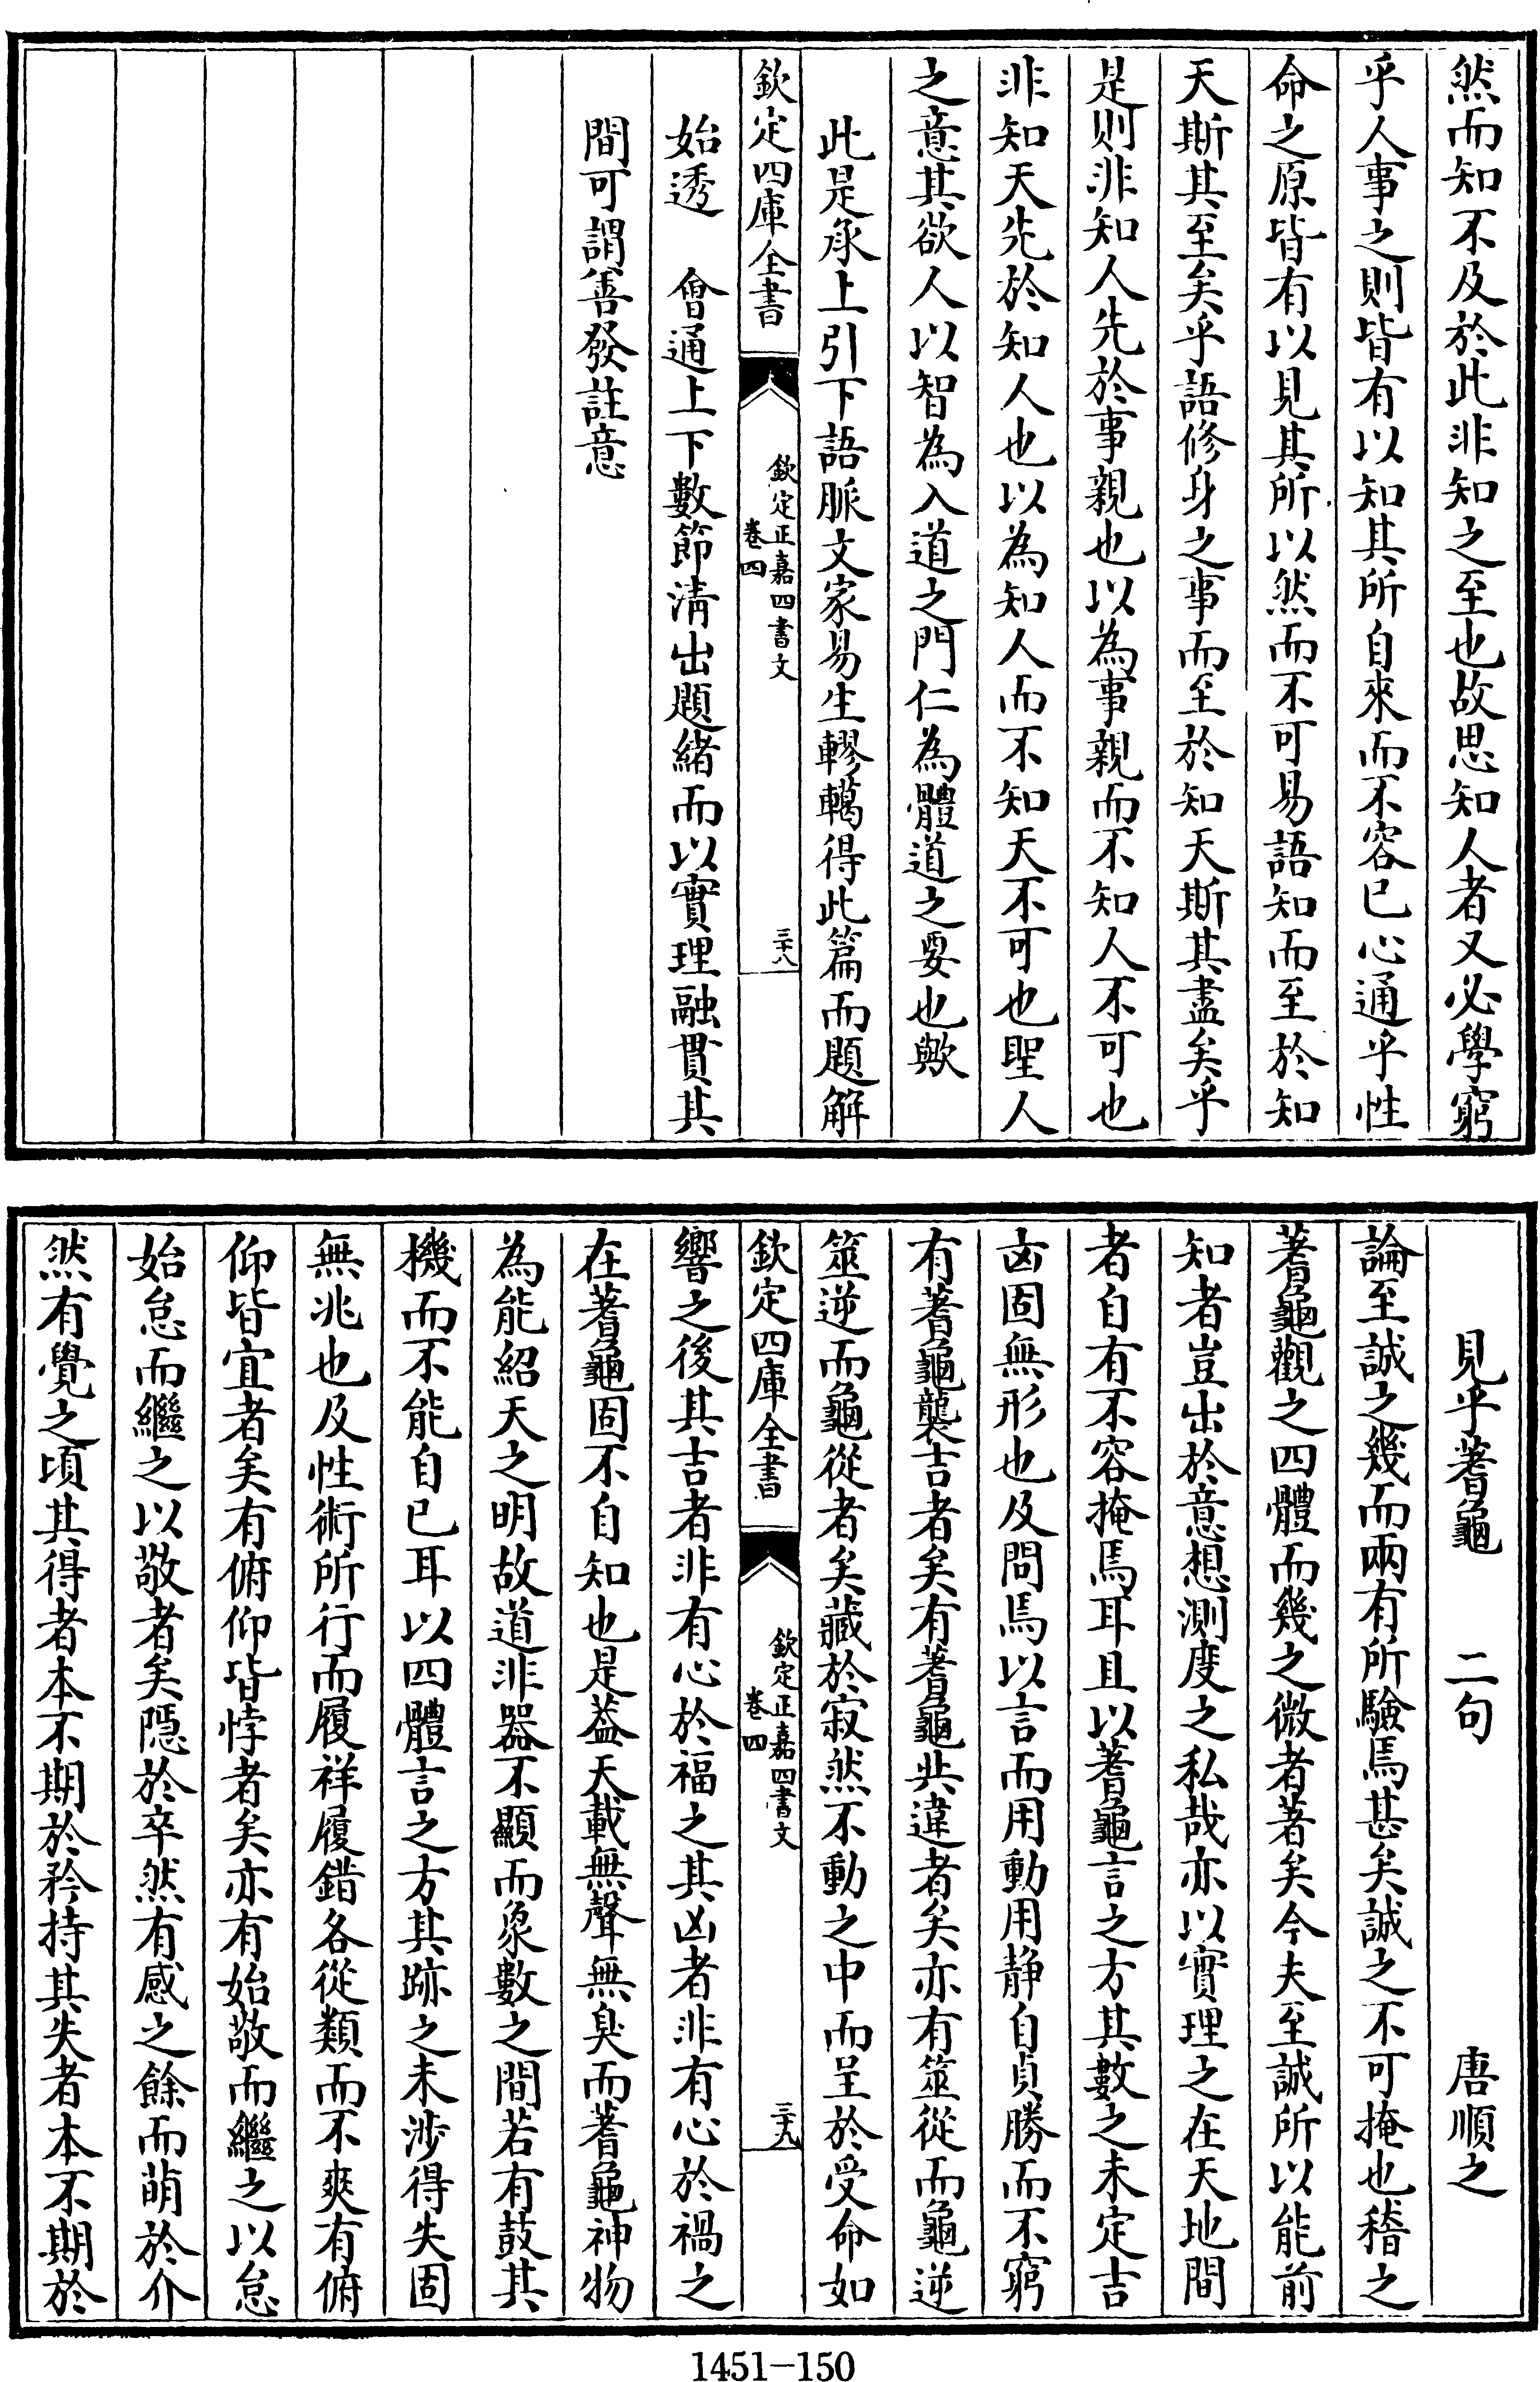 然而知不及於此非知之至也故思知人者又必學窮
乎人事之則皆有以知其所自來而不容已心通乎性
命之原皆有以見其所以然而不可易語知而至於知
天斯其至矣乎語修身之事而至於知天斯其盡矣乎
是則非知人先於事親也以為事親而不知人不可也
非知天先於知人也以為知人而不知天不可也聖人
之意其欲人以智為入道之門仁為體道之要也歟
此是承上引下語脈文家易生轇轕得此篇而題解
欽定四庫全書
欽定正嘉四書文
卷四
三十八
始透 會通上下數節清出題緒而以實理融貫其
間可謂善發註意
見乎蓍龜 二句 唐順之
論至誠之幾而兩有所驗焉甚矣誠之不可掩也稽之
蓍龜觀之四體而幾之微者著矣今夫至誠所以能前
知者豈出於意想測度之私哉亦以實理之在天地間
者自有不容掩焉耳且以蓍龜言之方其數之未定吉
凶固無形也及問焉以言而用動用静自貞勝而不窮
有蓍龜襲吉者矣有蓍龜共違者矣亦有筮從而龜逆
筮逆而龜從者矣藏於寂然不動之中而呈於受命如
欽定四庫全書
欽定正嘉四書文
卷四
三十九
響之後其吉者非有心於福之其凶者非有心於禍之
在蓍龜固不自知也是葢天載無聲無臭而蓍龜神物
為能紹天之明故道非器不顯而象數之間若有鼓其
機而不能自已耳以四體言之方其跡之未涉得失固
無兆也及性術所行而履祥履錯各從類而不爽有俯
仰皆宜者矣有俯仰皆悖者矣亦有始敬而繼之以怠
始怠而繼之以敬者矣隱於卒然有感之餘而萌於介
然有覺之頃其得者本不期於矜持其失者本不期於
1451-150